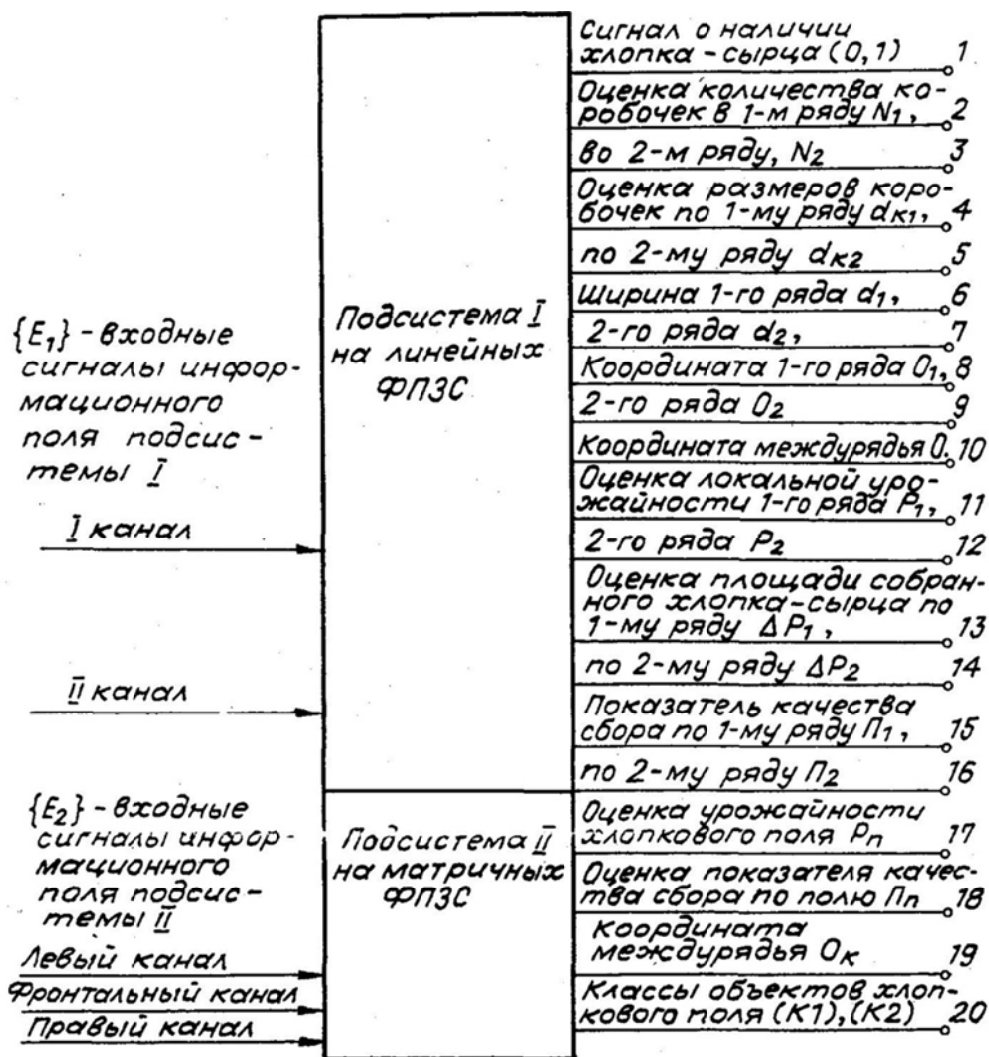 {E₁} - входные
сигналы инфор-
мационного
поля подсис-
темы I
I канал
II канал
{E₂} - входные
сигналы инфор-
мационного
поля подсис-
темы II
Левый канал
Фронтальный канал
Правый канал
Подсистема I
на линейных
ФПЗС
Подсистема II
на матричных
ФПЗС
Сигнал о наличии
хлопка-сырца (0,1) 1
Оценка количества ко-
робочек в 1-м ряду N₁, 2
во 2-м ряду, N₂ 3
Оценка размеров коро-
бочек по 1-му ряду dк₁, 4
по 2-му ряду dк₂ 5
Ширина 1-го ряда d₁, 6
2-го ряда d₂, 7
Координата 1-го ряда O₁, 8
2-го ряда O₂ 9
Координата междурядья O. 10
Оценка локальной уро-
жайности 1-го ряда P₁, 11
2-го ряда P₂ 12
Оценка площади собран-
ного хлопка-сырца по
1-му ряду ΔP₁, 13
по 2-му ряду ΔP₂ 14
Показатель качества
сбора по 1-му ряду П₁, 15
по 2-му ряду П₂ 16
Оценка урожайности
хлопкового поля Pп 17
Оценка показателя качес-
тва сбора по полю Пп 18
Координата
междурядья Oк 19
Классы объектов хлоп-
кового поля (К1),(К2) 20